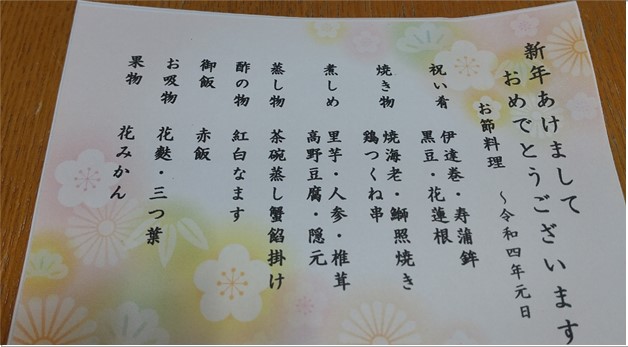 新年あけまして
おめでとうございます
お節料理　〜令和四年元日
祝い肴　伊達巻・寿蒲鉾
黒豆・花蓮根
焼き物　焼海老・鰤照焼き
鶏つくね串
煮しめ　里芋・人参・椎茸
高野豆腐・隠元
蒸し物　茶碗蒸し蟹餡掛け
酢の物　紅白なます
御飯　赤飯
お吸物　花麩・三つ葉
果物　花みかん